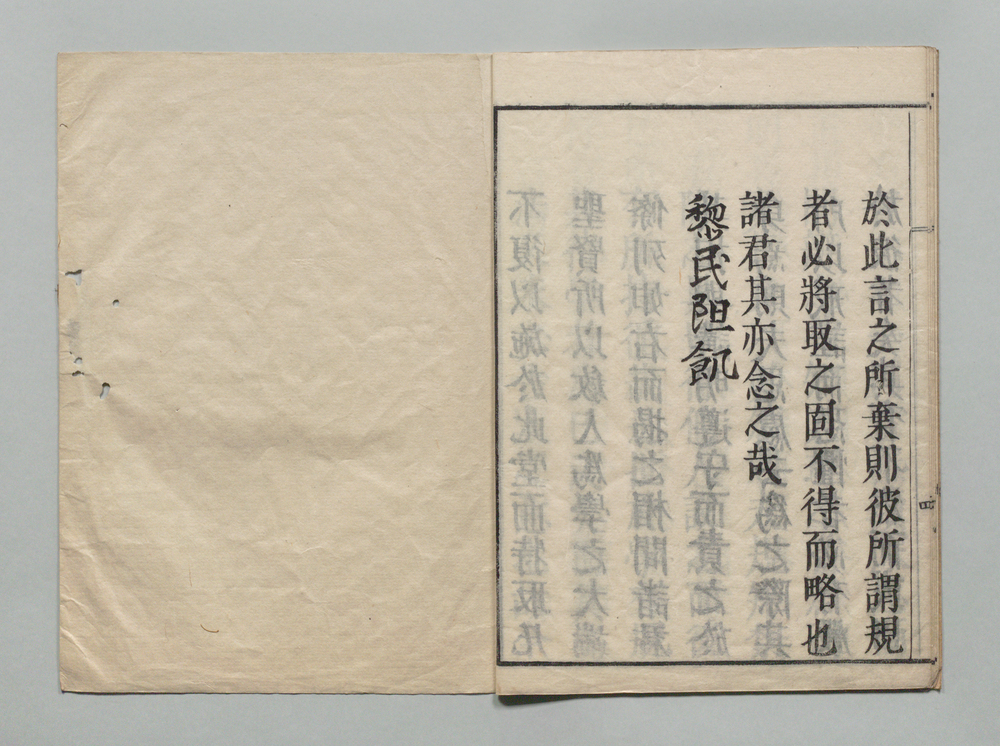 於此言之所棄則彼所謂規
者必將取之固不得而略也
諸君其亦念之哉
黎民阻飢
四